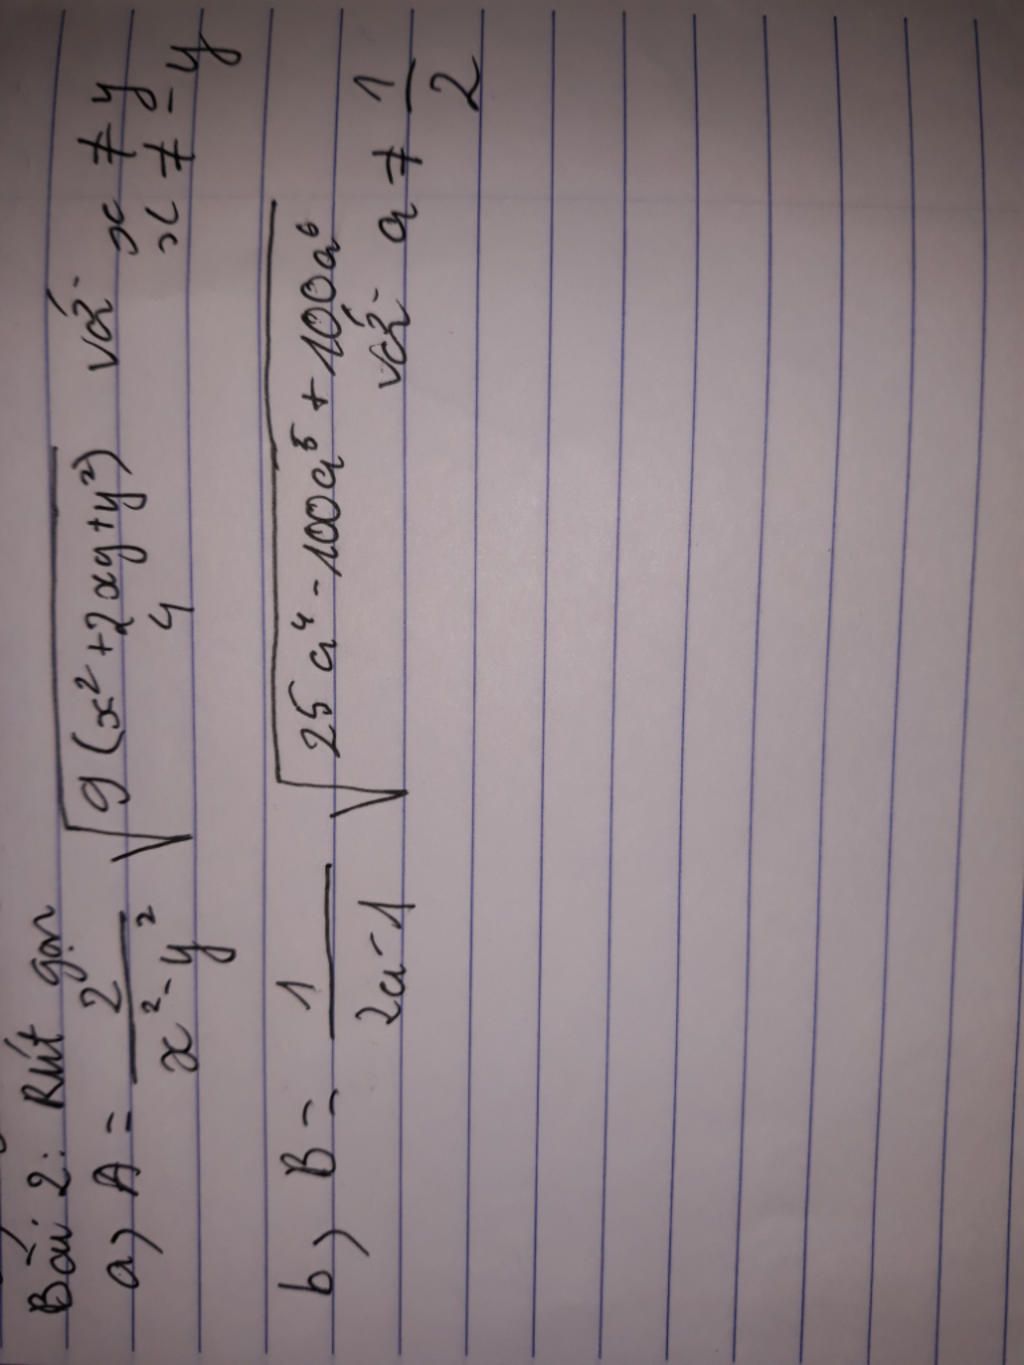 Bài 2: Rút gọn
a) A = 2/(x² - y²) √(9(x² + 2xy + y²)/4) với x ≠ y
x ≠ - y
b) B = 1/(2a - 1) √(25a⁴ - 100a⁵ + 100a⁶)
với a ≠ 1/2